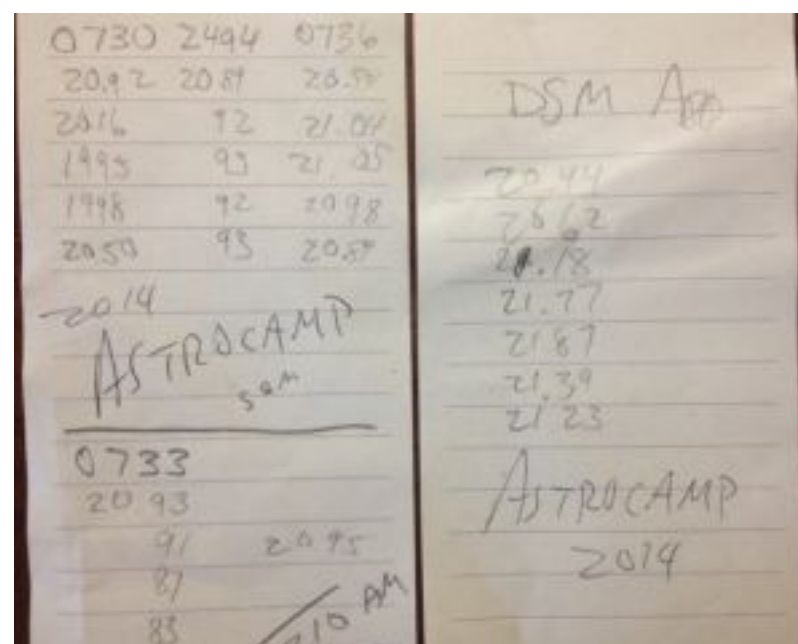 0730 2494 0736
20.92 2089
2016 92 21.04
1995 93 21.05
1998 92 2098
2050 93 20.89
2014
ASTROCAMP
SQM
0733
20 93
91 20 95
87
83
210 AM
DSM App
20.44
20.62
21.18
21.77
21 87
21.39
21 23
ASTROCAMP
2014